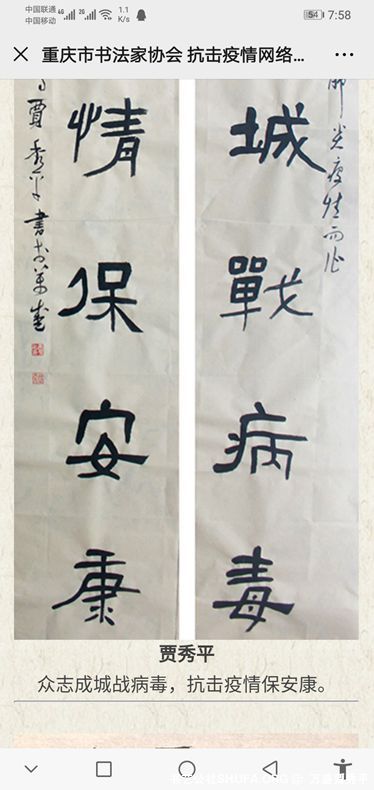 中国联通
中国移动
4G
2G
1.1
K/s
54
7:58
重庆市书法家协会 抗击疫情网络...
肺炎疫情而作
城戰病毒
情保安康
贾秀平書於萬盛
贾秀平
众志成城战病毒，抗击疫情保安康。